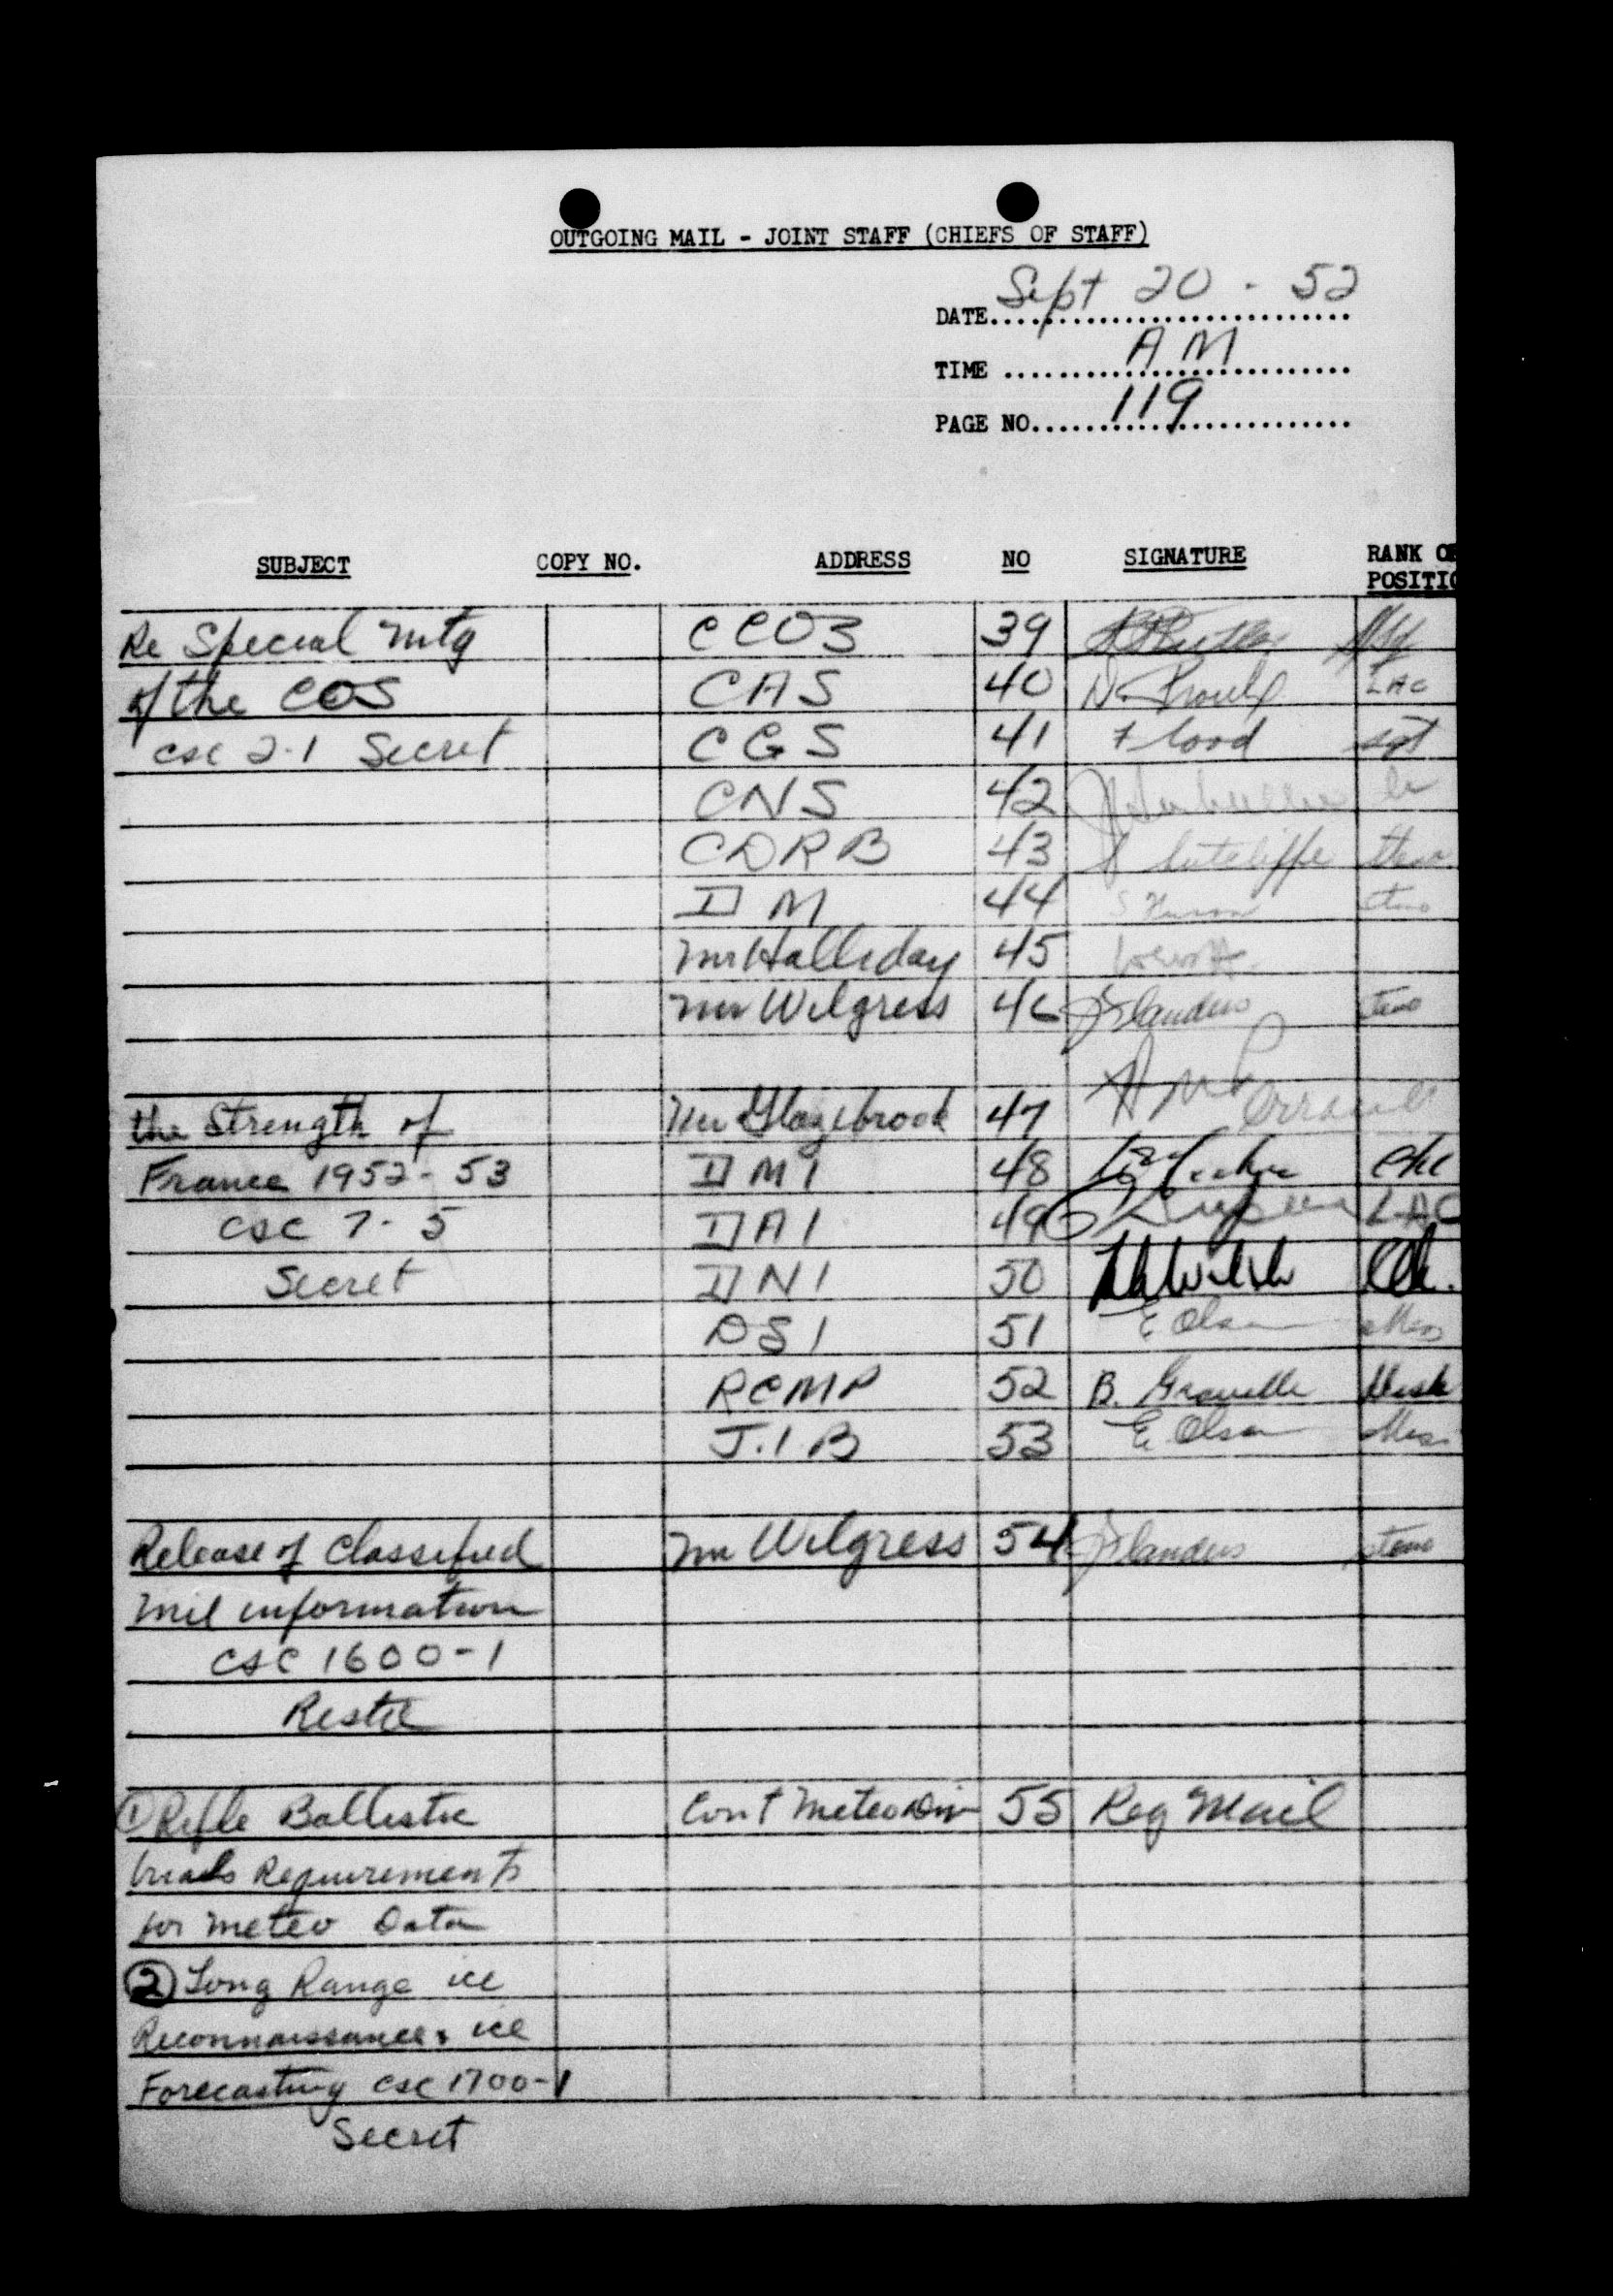 OUTGOING MAIL - JOINT STAFF (CHIEFS OF STAFF)
DATE Sept 20 - 52
TIME AM
PAGE NO. 119
SUBJECT COPY NO. ADDRESS NO SIGNATURE RANK OR
POSITIO
Re Special Mtg CCOS 39
of the COS CAS 40 LAC
csc 2-1 Secret CGS 41 Flood sgt
CNS 42
CDRB 43 Sutcliffe
DM 44
Mr Halliday 45
Mr Wilgress 46 Steno
the Strength of Mr Glazebrook 47
France 1952-53 DMI 48
csc 7-5 DAI 49 LAC
Secret DNI 50
DSI 51 E Olsen Mess
RCMP 52 B. Gravelle
J.I B 53 E. Olsen Mess
Release of Classified Mr Wilgress 54 steno
Mil information
csc 1600-1
① Rifle Ballistic Cont Meteo Div 55 Reg Mail
trials Requirements
for meteo Data
② Long Range ice
Reconnaissance & ice
Forecasting csc 1700-1
Secret